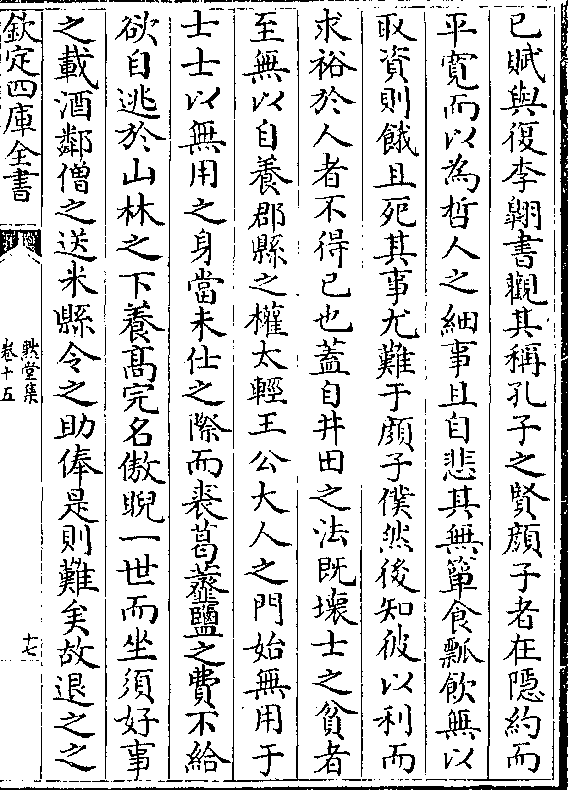 已賦與復李翶書觀其稱孔子之賢顔子者在隱約而
平寛而以為哲人之細事且自悲其無簞食瓢飲無以
取資則餓且死其事尤難于顔子僕然後知彼以利而
求裕於人者不得已也蓋自井田之法既壞士之貧者
至無以自養郡縣之權太輕王公大人之門始無用于
士士以無用之身當未仕之際而裘葛虀鹽之費不給
欲自逃於山林之下養髙完名傲睨一世而坐須好事
之載酒鄰僧之送米縣令之助俸是則難矣故退之之
欽定四庫全書
黙堂集
卷十五
十七